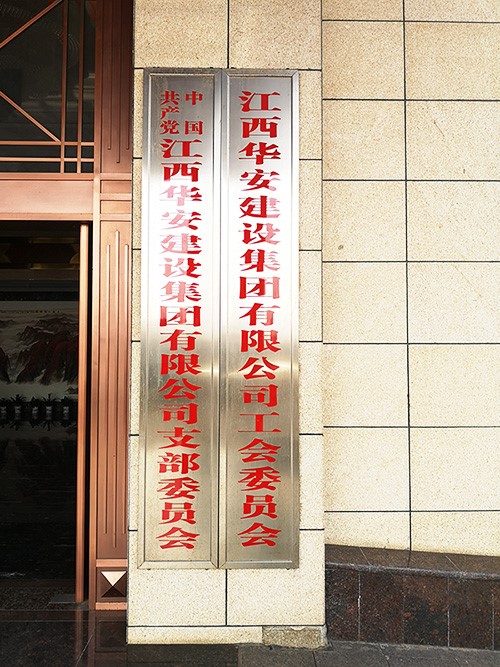 中国
共产党
江西华安建设集团有限公司支部委员会
江西华安建设集团有限公司工会委员会